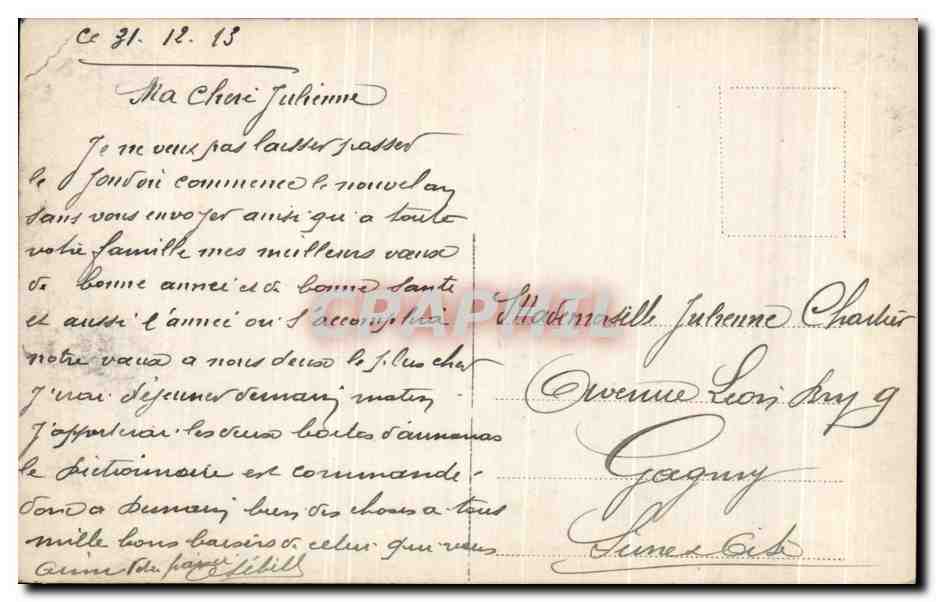 Ce 31. 12. 13
Ma Cheri Julienne
Je ne veux pas laisser passer
le Jour où commence le nouvel an
sans vous envoyer ainsi qu'a toute
votre famille mes meilleurs vœux
de bonne année et de bonne santé
et aussi l'année ou s'accomplira
notre vœux a nous deux le plus cher
J'irai déjeuner demain matin
J'apporterai les deux boites d'annanas
le Dictionnaire est commandé
donc a Demain bien des choses a tous
mille bons baisers de celui qui vous
aime
CPARAMA
Mademoiselle Julienne Chartier
Avenue Leon Bry 9
Gagny
Seine et Oise